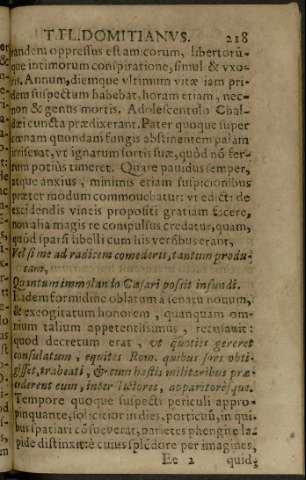 T. FL. DOMITIANVS. 218
tandem oppressus est amicorum, libertorū-
que intimorum conspiratione, simul & vxo-
ris. Annum, diemque vltimum vitæ iam pri-
dem suspectum habebat, horam etiam, nec-
non & genus mortis. Adolescentulo Chal-
dæi cuncta prædixerant. Pater quoque super
cœnam quondam fungis abstinentem palàm
irriserat, vt ignarum sortis suæ, quòd nō fer-
rum potiùs timeret. Quare pauidus semper,
atque anxius, minimis etiam suspicionibus
præter modum commouebatur: vt edicti de
excidendis vineis propositi gratiam facere,
non alia magis re compulsus credatur, quam,
quòd sparsi libelli cum his versibus erant,
Vel si me ad radicem comederis, tantum produ-
cam,
Quantum immolando Cæsari possit infundi.
Eadem formidine oblatum à senatu nouum,
& excogitatum honorem, quanquam om-
nium talium appetentissimus, recusauit:
quod decretum erat, vt quoties gereret
consulatum, equites Rom. quibus sors obti-
gisset, trabeati, & cum hastis militaribus præ-
cederent eum, inter lictores, apparitoresque.
Tempore quoque suspecti periculi appro-
pinquante, solicitior in dies, porticuū, in qui-
bus spatiari cōsueuerat, parietes phengite la-
pide distinxit: è cuius splēdore per imagines,
Ee 2 quid-